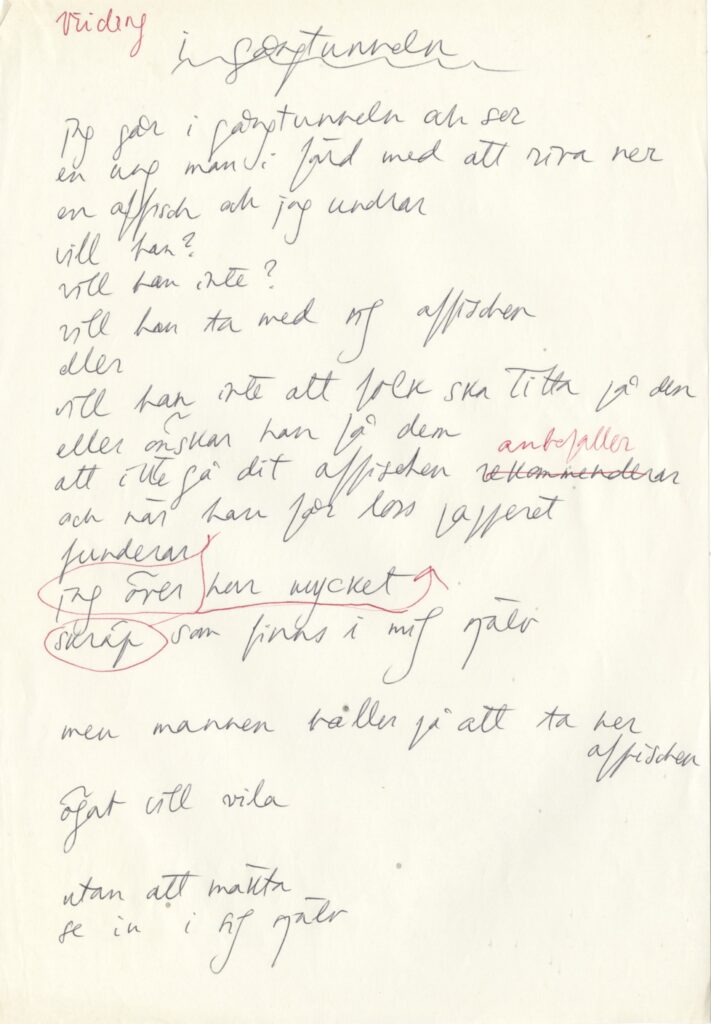 Vridning
i gångtunneln
jag går i gångtunneln och ser
en ung man i färd med att riva ner
en affisch och jag undrar
vill han?
vill han inte?
vill han ta med sig affischen
eller
vill han inte att folk ska titta på den
eller önskar han få dem
anbefaller
att icke gå dit affischen rekommenderar
och när han får loss papperet
funderar
jag över hur mycket
skräp som finns i mig själv
men mannen håller på att ta ner
affischen
ögat vill vila
utan att mäkta
se in i sig själv